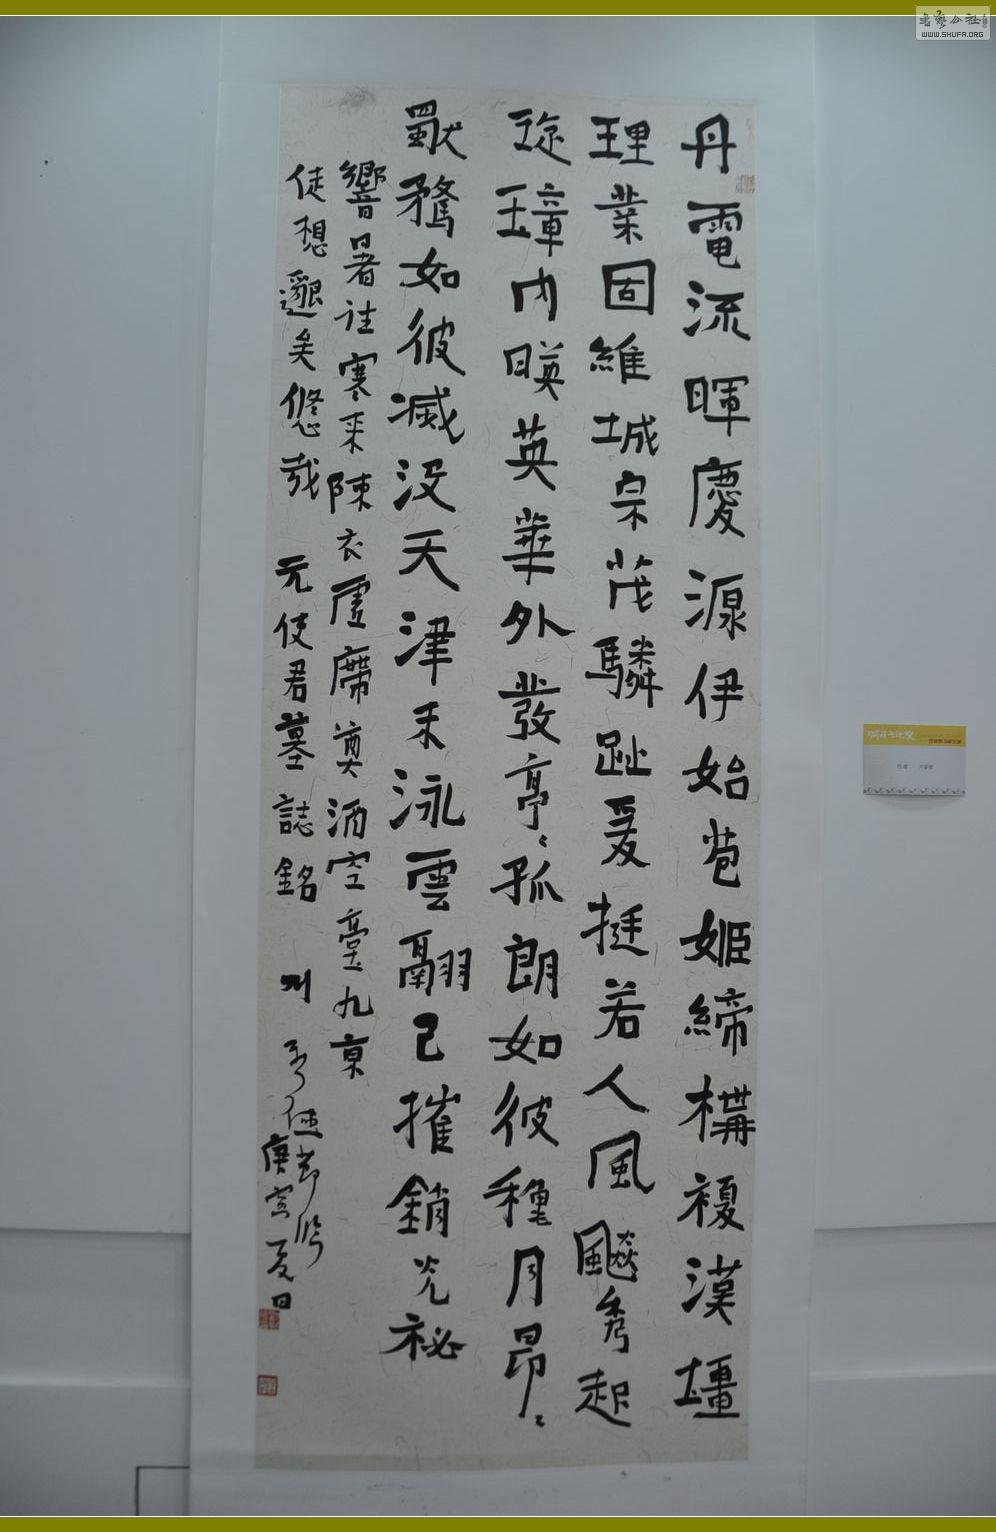 丹電流暉慶源伊始苞姬締構複漢壃
理業固維城宗茂驎趾爰挺若人風飈秀起
琁璋内暎英華外發亭〻孤朗如彼穜月昂〻
歜鶩如彼滅没天津未泳雲翮已摧銷光祕
響暑往寒来陳衣虛席奠酒空臺九京
徒想邈矣悠哉 元使君墓誌銘
庚寅夏日
WWW.SHUFA.ORG